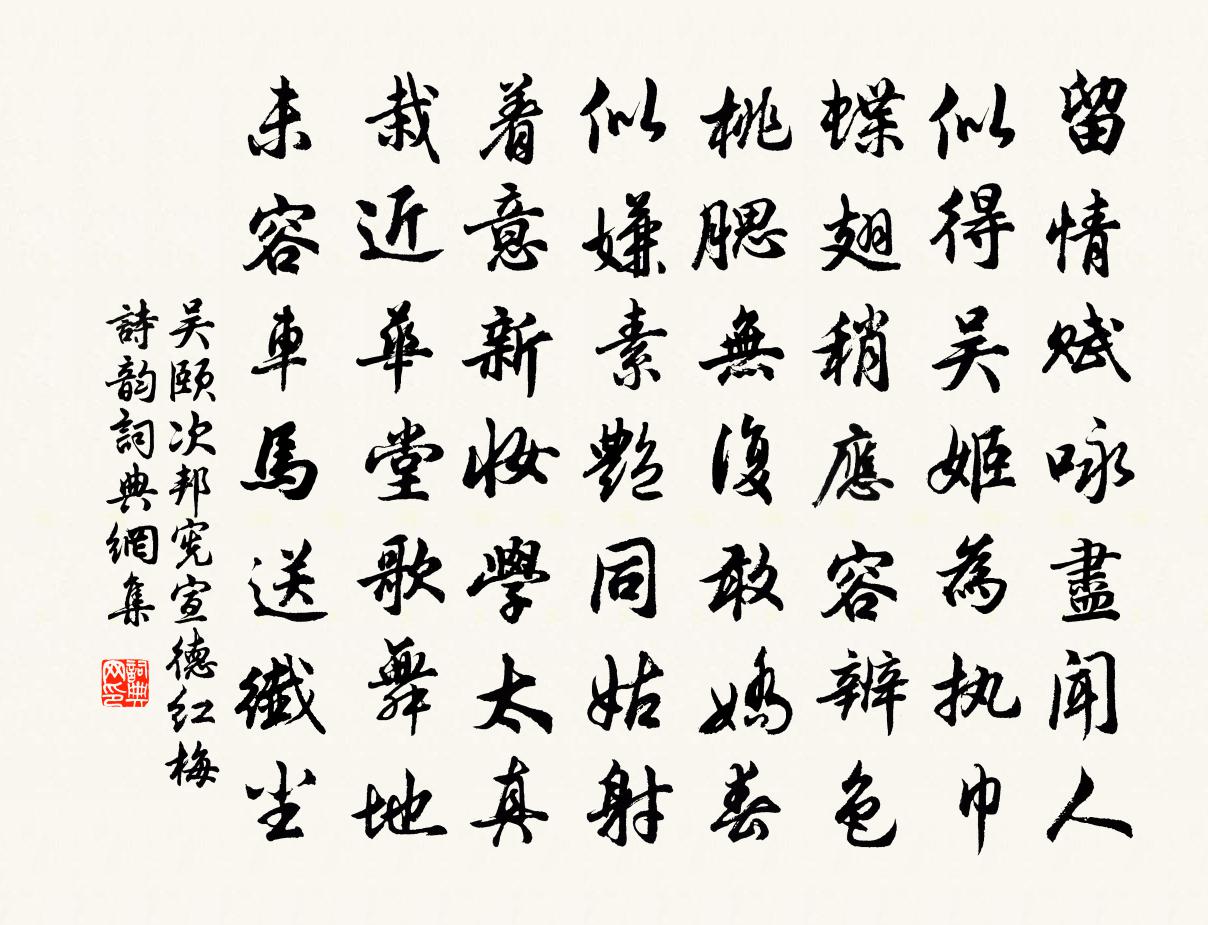 留情賦咏盡聞人
似得吴姬為执巾
蝶翅稍應容辨色
桃腮無復敢嬌春
似嫌素艷同姑射
着意新妝學太真
栽近華堂歌舞地
未容車馬送纖尘
吴颐次邦宪宣德红梅
詩韵詞典網集
詞典网印